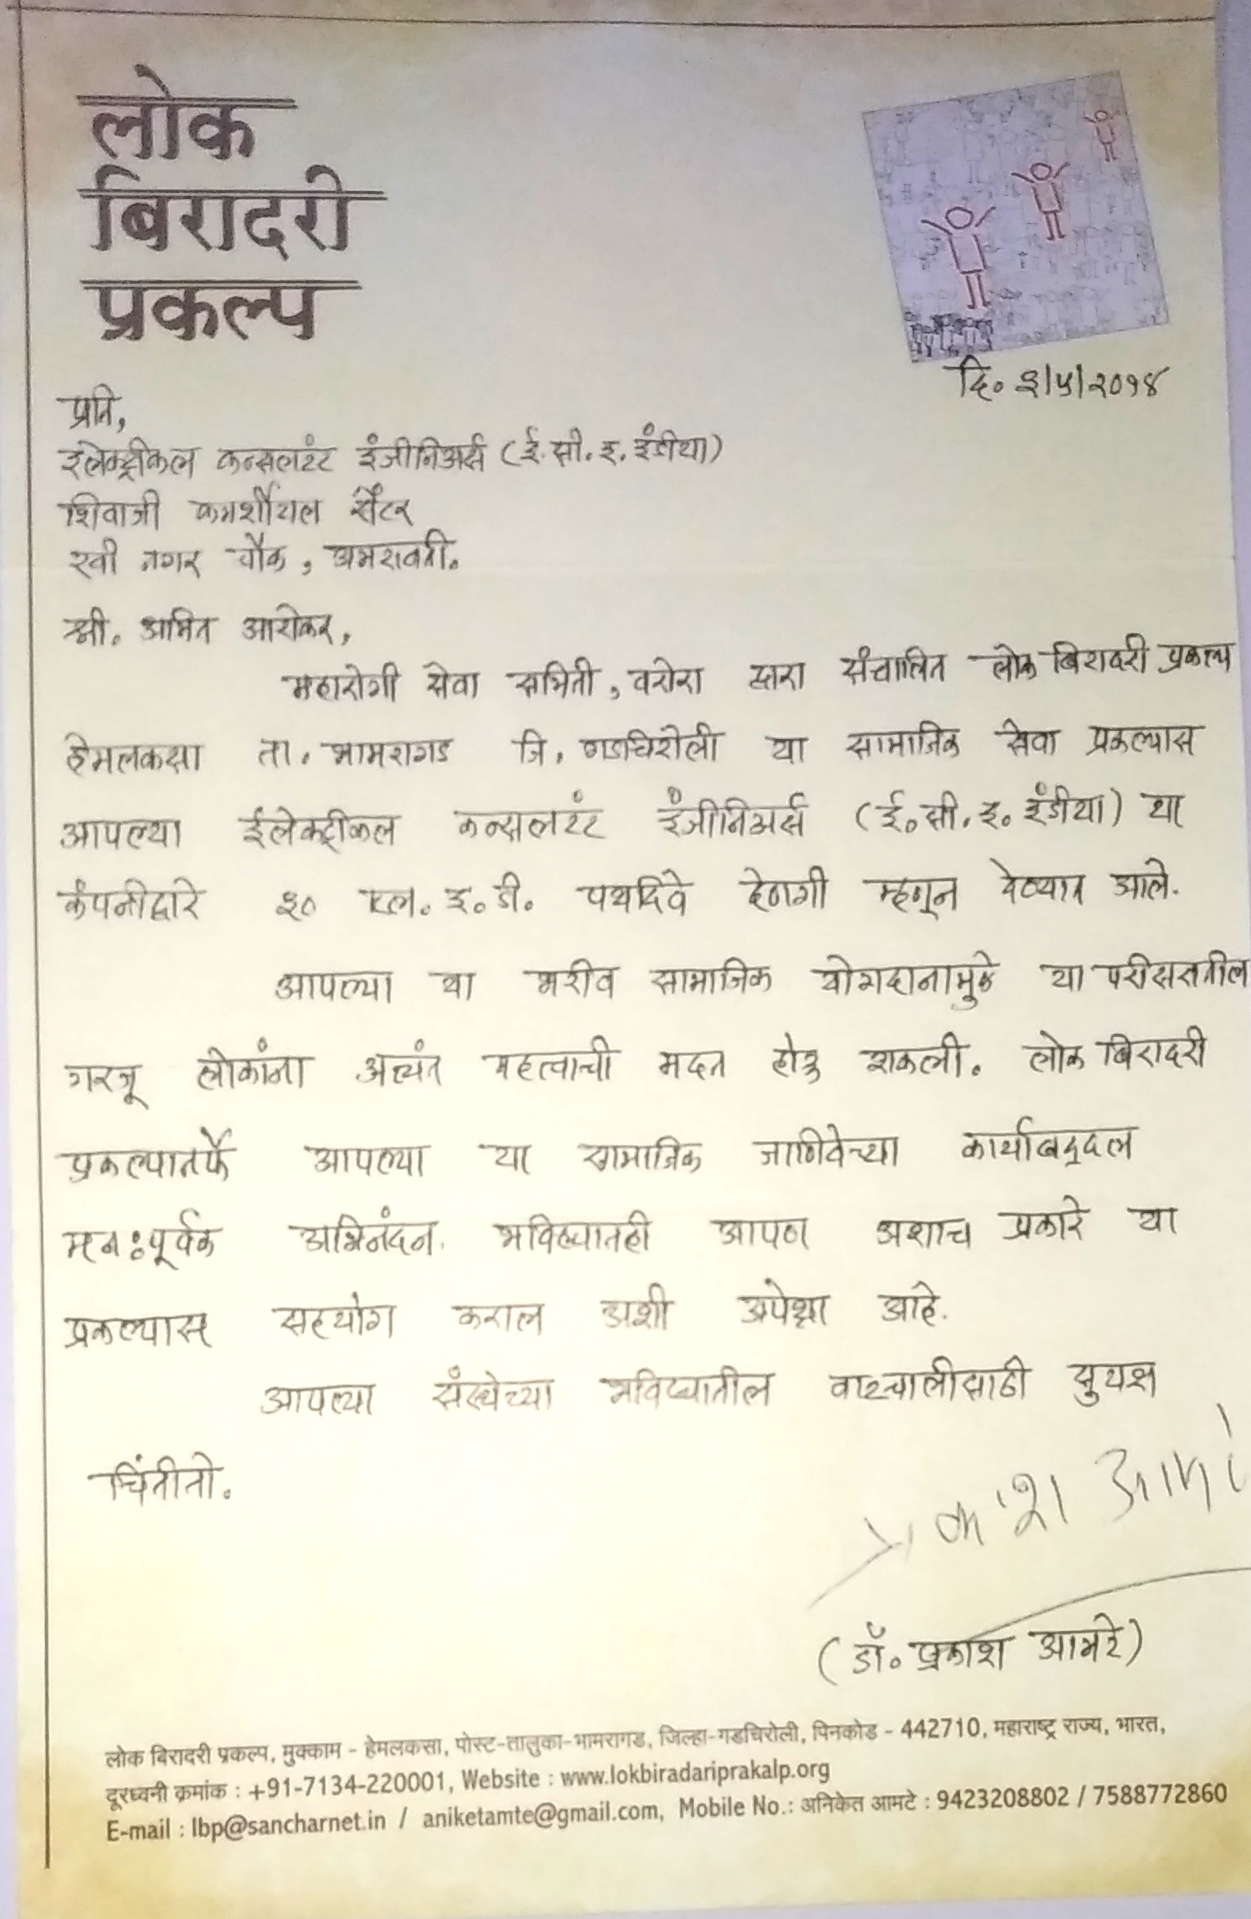 लोक
बिरादरी
प्रकल्प
दि. ३/५/२०१४
प्रति,
इलेक्ट्रीकल कन्सलटंट इंजीनिअर्स (ई.सी.इ.इंडीया)
शिवाजी कमर्शीयल सेंटर
रवी नगर चौक, अमरावती.
श्री. अमित आरोकर,
महारोगी सेवा समिती, वरोरा द्वारा संचालित लोक बिरादरी प्रकल्प
हेमलकसा ता. भामरागड जि. गडचिरोली या सामाजिक सेवा प्रकल्पास
आपल्या ईलेक्ट्रीकल कन्सलटंट इंजीनिअर्स (ई.सी.इ.इंडीया) या
कंपनीद्वारे ३० एल.इ.डी. पथदिवे देणगी म्हणून देण्यात आले.
आपल्या या भरीव सामाजिक योगदानामुळे या परीसरातील
गरजू लोकांना अत्यंत महत्वाची मदत होऊ शकली. लोक बिरादरी
प्रकल्पातर्फे आपल्या या सामाजिक जाणिवेच्या कार्याबद्दल
मनःपूर्वक अभिनंदन. भविष्यातही आपण अशाच प्रकारे या
प्रकल्पास सहयोग कराल अशी अपेक्षा आहे.
आपल्या संस्थेच्या भविष्यातील वाटचालीसाठी सुयश
चिंतीतो.
प्रकाश आमटे
(डॉ. प्रकाश आमटे)
लोक बिरादरी प्रकल्प, मुक्काम - हेमलकसा, पोस्ट-तालुका-भामरागड, जिल्हा-गडचिरोली, पिनकोड - 442710, महाराष्ट्र राज्य, भारत,
दूरध्वनी क्रमांक : +91-7134-220001, Website : www.lokbiradariprakalp.org
E-mail : lbp@sancharnet.in / aniketamte@gmail.com, Mobile No.: अनिकेत आमटे : 9423208802 / 7588772860